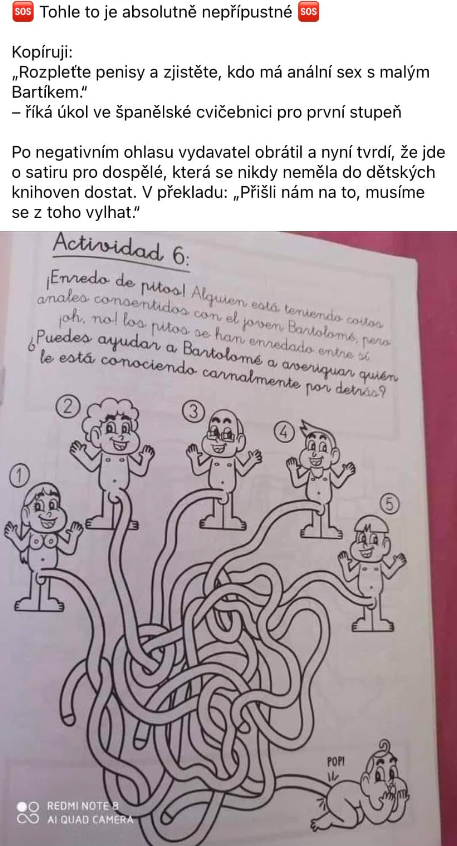 🆘 Tohle to je absolutně nepřípustné 🆘
Kopíruji:
„Rozpleťte penisy a zjistěte, kdo má anální sex s malým
Bartíkem.“
– říká úkol ve španělské cvičebnici pro první stupeň
Po negativním ohlasu vydavatel obrátil a nyní tvrdí, že jde
o satiru pro dospělé, která se nikdy neměla do dětských
knihoven dostat. V překladu: „Přišli nám na to, musíme
se z toho vylhat.“
Actividad 6:
¡Enredo de pitos! Alguien está teniendo coitos
anales consentidos con el joven Bartolomé, pero
¡oh, no! los pitos se han enredado entre sí
¿Puedes ayudar a Bartolomé a averiguar quién
le está conociendo carnalmente por detrás?
1
2
3
4
5
POP!
REDMI NOTE 8
AI QUAD CAMERA